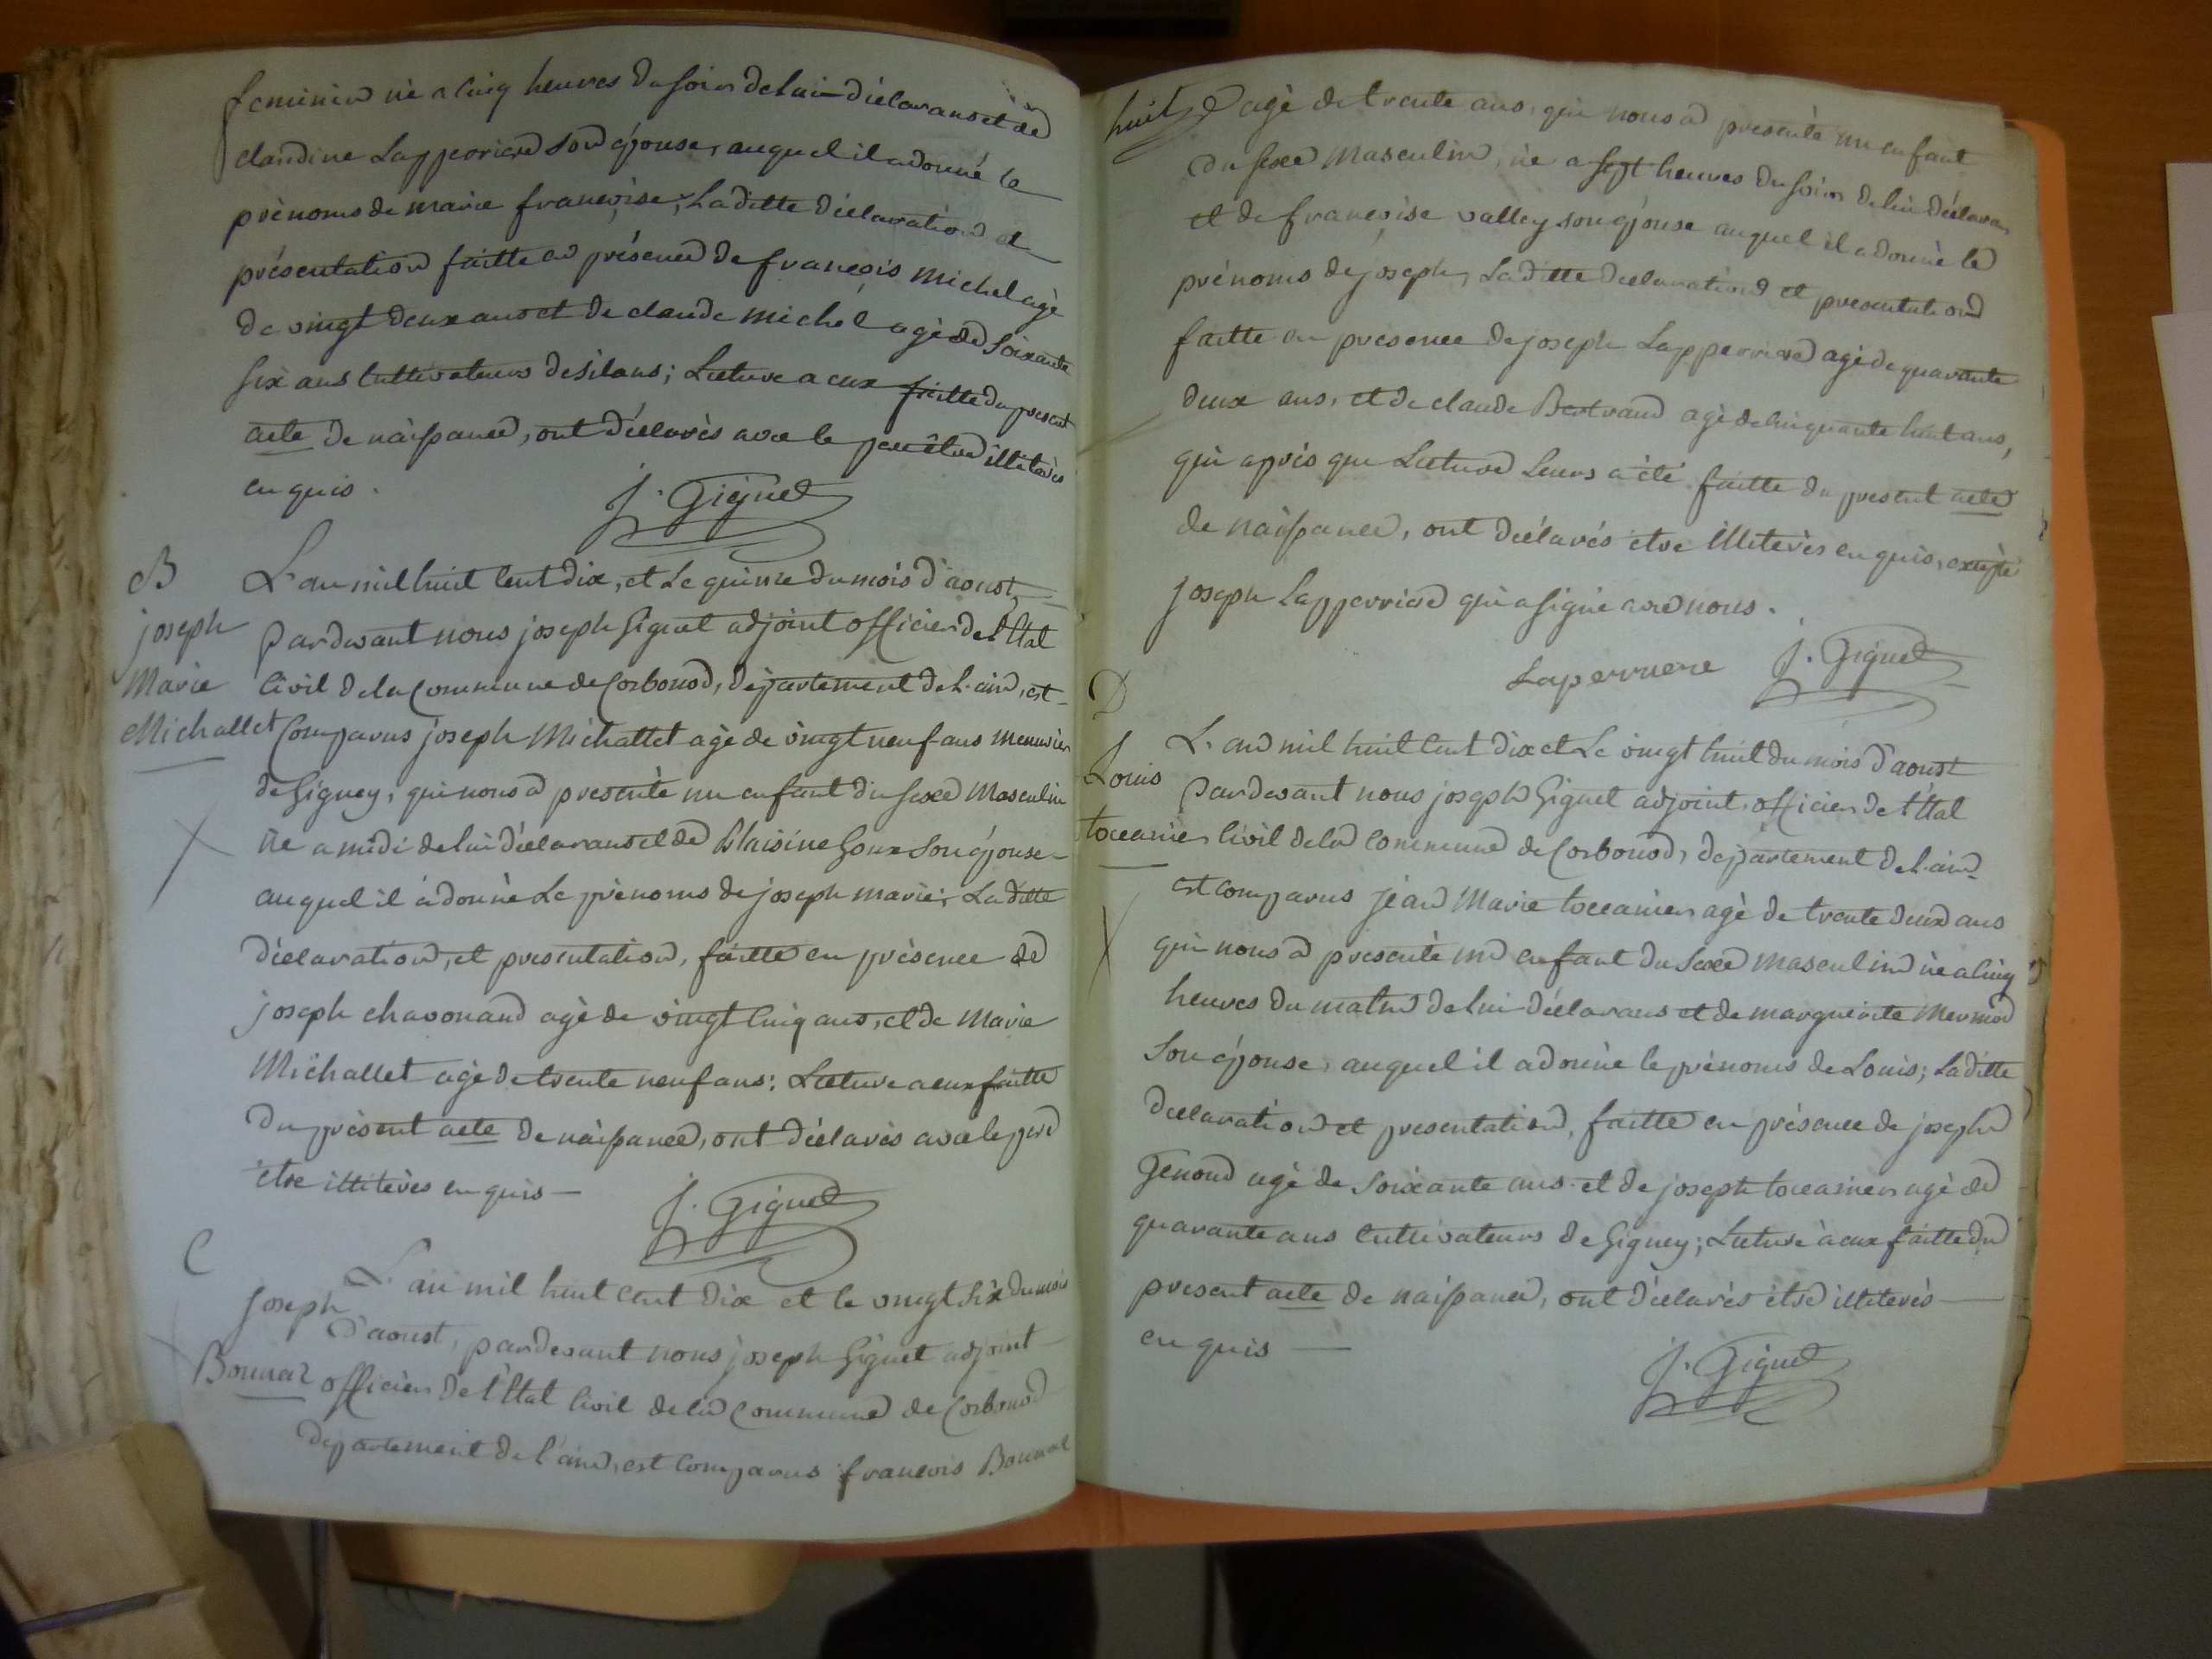 feminin né a cinq heures du soir de lui déclarans et de
claudine Lapperriere son épouse, auquel il a donné le
prénoms de marie françoise, Laditte déclaration et
présentation faitte en présence de françois michel agé
de vingt deux ans et de claude michel agé de soixante
six ans Cultivateurs de silans; Lecture a eux faitte du present
acte de naissance, ont déclarés avec le pere être illiterés
en quis.
J. Giguet
B
joseph
Marie
Michallet
L'an mil huit cent dix, et le quinze du mois d'aoust,
Pardevant nous joseph Giguet adjoint officier de l'Etat
Civil de la Commune de Corbonod, département de l'ain, est
Comparus joseph Michallet agé de vingt neuf ans meunier
de Gigney, qui nous a presenté un enfant du sexe Masculin
né a midi de lui déclarans et de Blaisine Goux son épouse
auquel il a donné le prénoms de joseph marie; Laditte
déclaration, et presentation, faitte en présence de
joseph chavonand agé de vingt cinq ans, et de Marie
Michallet agé de trente neuf ans; Lecture a eux faitte
du présent acte de naissance, ont déclarés avec le pere
etre illiterés en quis
J. Giguet
C
Joseph
Bonnaz
L'an mil huit cent dix et le vingt six du mois
d'aoust, pardevant nous joseph Giguet adjoint
officier de l'Etat Civil de la Commune de Corbonod
departement de l'ain, est Comparus françois Bonnaz
huit
agé de trente ans, qui nous a presenté un enfant
du sexe Masculin, né a sept heures du soir de lui déclarans
et de françoise valley son épouse auquel il a donné le
prénoms de joseph, Laditte declaration et presentation
faitte en presence de joseph Lapperriere agé de quarante
deux ans, et de claude Bertrand agé de cinquante huit ans,
qui après que Lecture Leurs a été faitte du present acte
de naissance, ont déclarés etre illiterés en quis, excepté
joseph Lapperriere qui a signé avec nous.
Laperriere J. Giguet
D
Louis
toccanier
L'an mil huit cent dix et Le vingt huit du mois d'aoust
Pardevant nous joseph Giguet adjoint, officier de l'Etat
Civil de la Commune de Corbonod, departement de l'ain
est Comparus jean Marie toccanier agé de trente deux ans
qui nous a presenté un enfant du sexe masculin né a cinq
heures du matin de lui déclarans et de marguerite Mermod
son épouse, auquel il a donné le prénoms de Louis; Laditte
declaration et presentation, faitte en présence de joseph
Genond agé de soixante ans et de joseph toccanier agé de
quarante ans Cultivateurs de Gigney; Lecture à eux faitte du
present acte de naissance, ont déclarés etre illiterés
en quis
J. Giguet